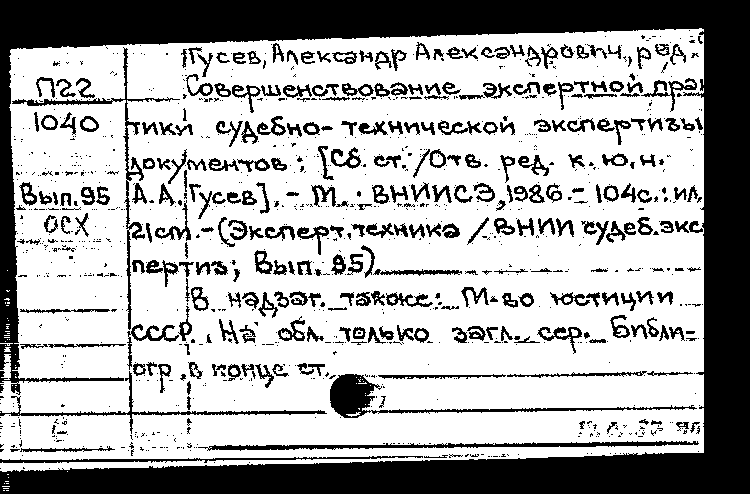 Гусев, Александр Александрович, ред.
П22 Совершенствование экспертной прак
1040 тики судебно-технической экспертизы
документов: [Сб. ст. / Отв. ред. к. ю. н.
Вып. 95 А. А. Гусев]. - М. : ВНИИСЭ, 1986. - 104с.: ил.
ОСХ 21см. - (Эксперт. техника / ВНИИ судеб. экс
пертиз; Вып. 95).
В надзаг. также: М-во юстиции
СССР. На обл. только загл. сер. Библи-
огр. в конце ст.